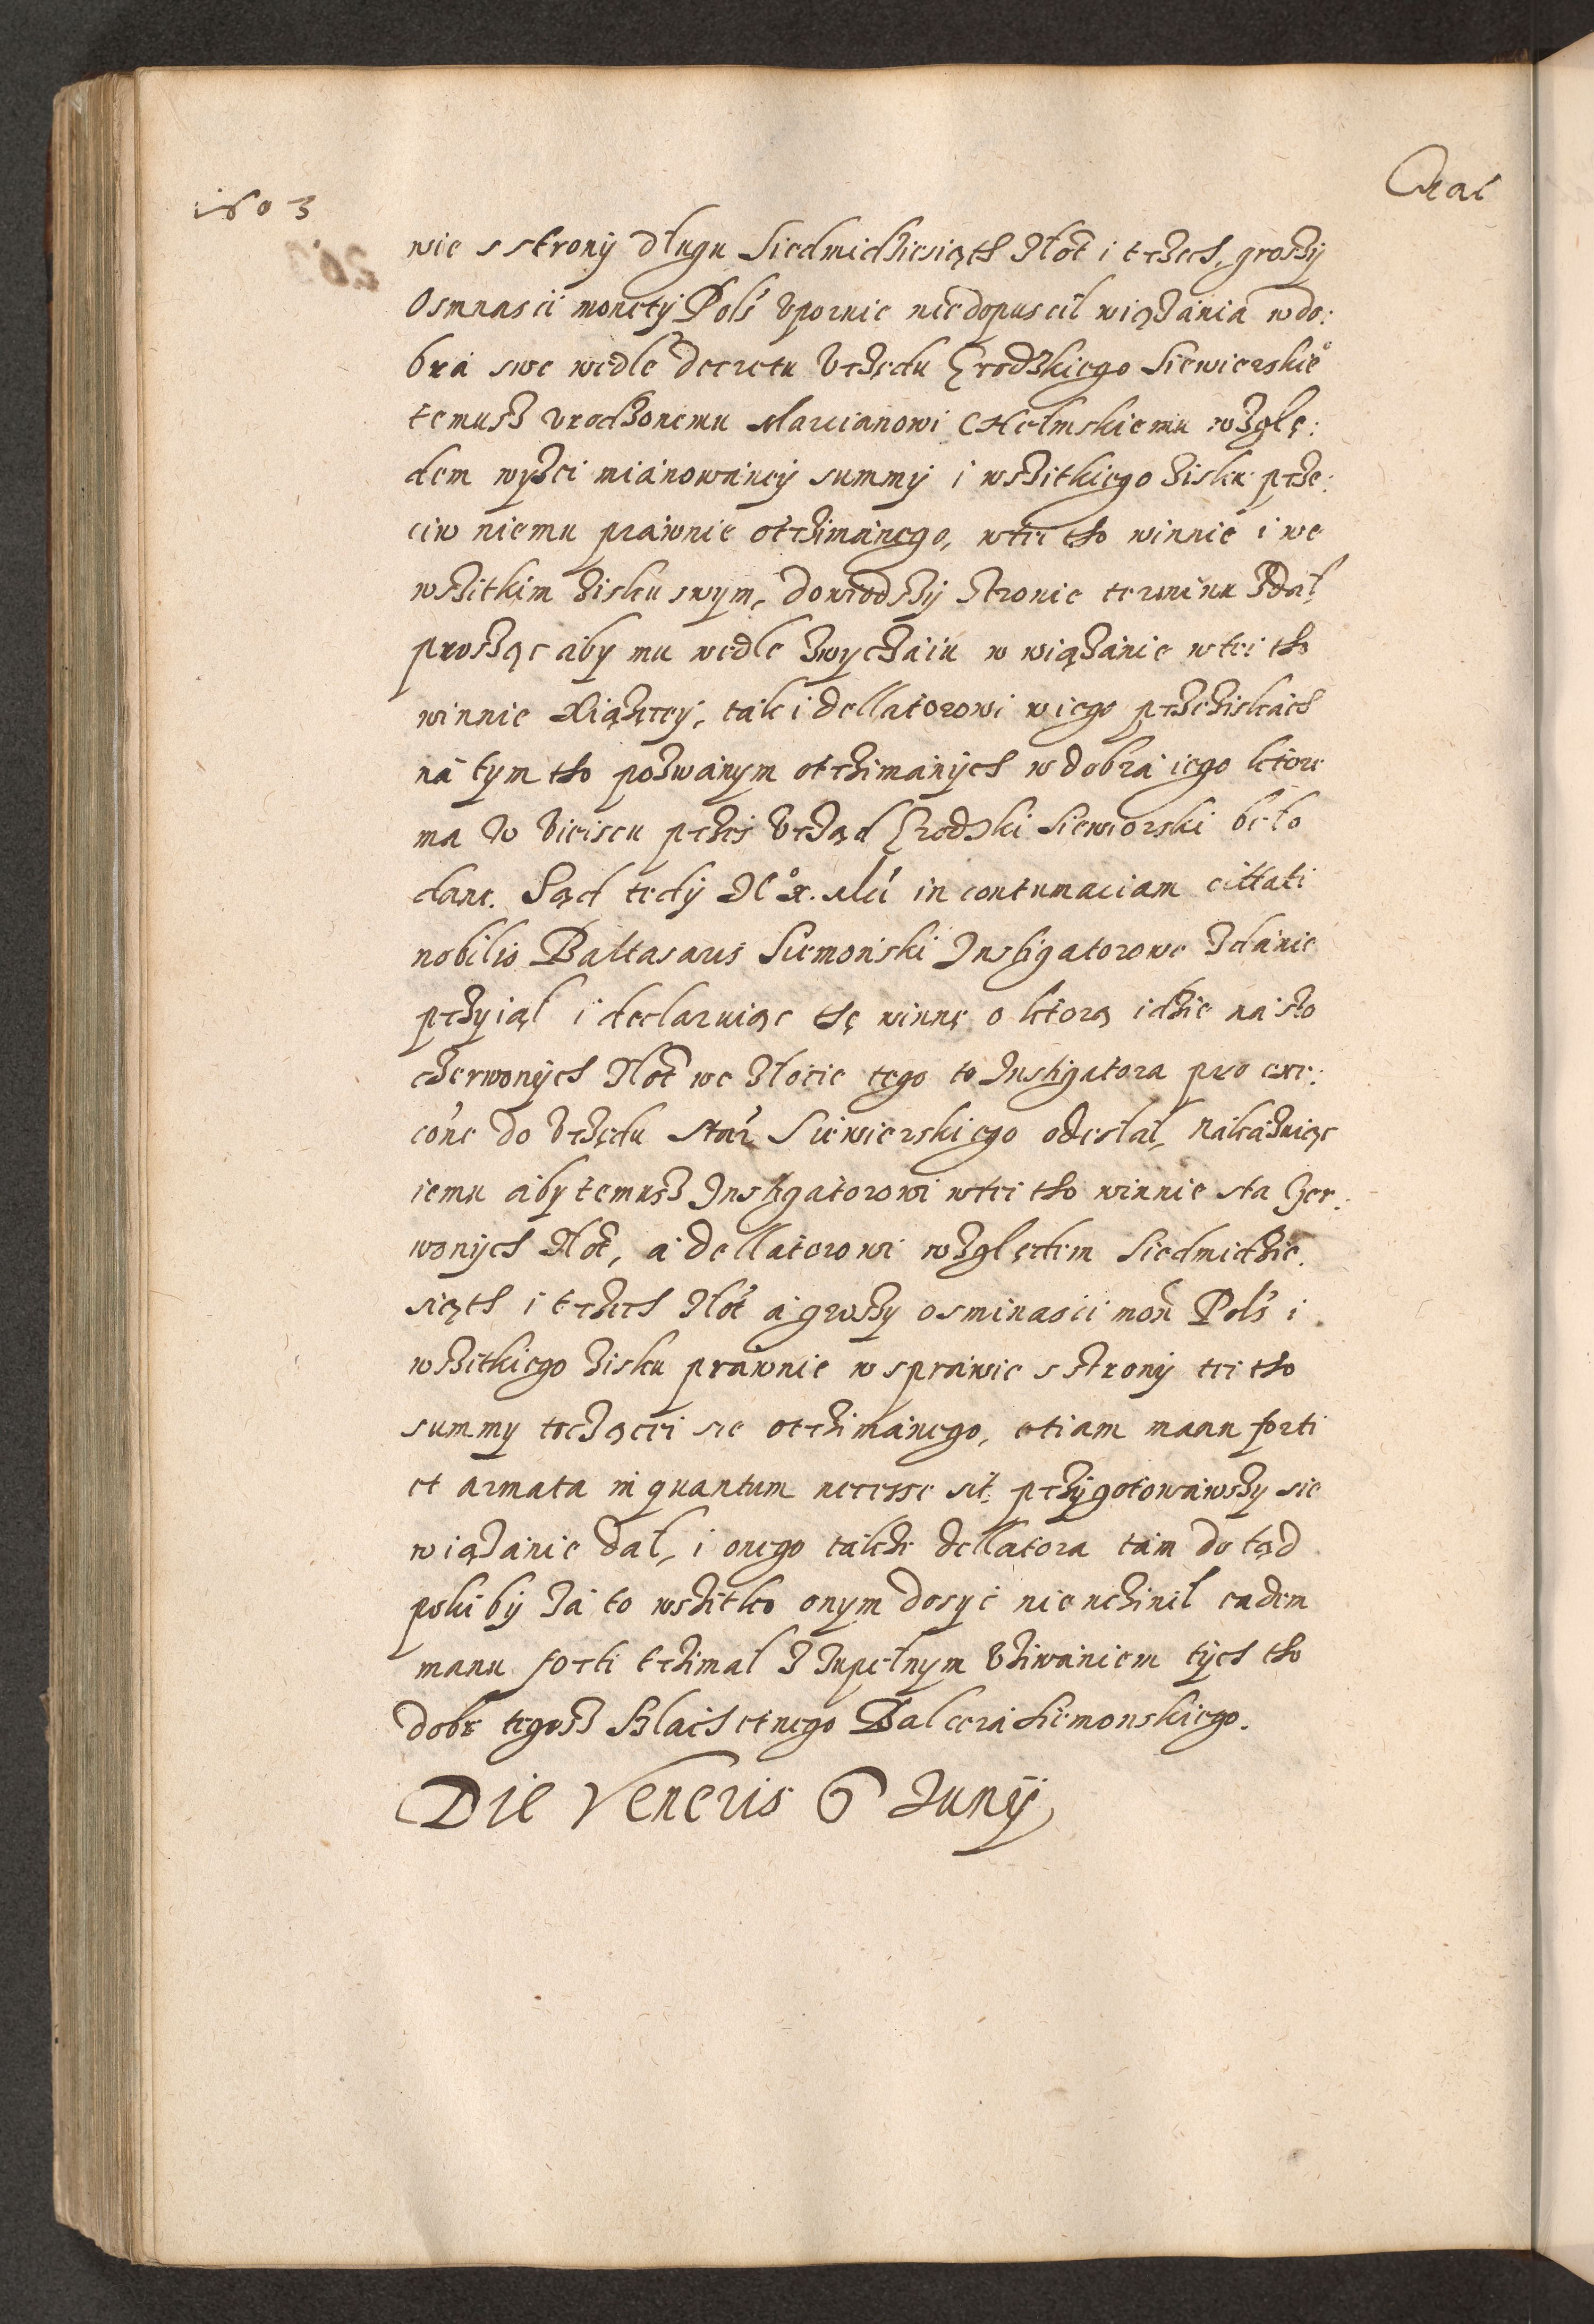 1603
wie s strony długu Siedmidziesiąth Złot i trzech, groszy
Osmnasci monety Pols vpornie niedopuscil wiązania w do:
bra swe wedle decretu Vrzędu Grodzkiego Siewierskie°
temusz vrodzonemu Marcianowi Chełmskiemu wzglę:
dem wyżei mianowaney summy i wszitkiego zisku prze:
ciw niemu prawnie otrzimanego, w tei tho winnie i we
wszitkim zisku swym, dowiodszy stronie terminu zdał,
prosząc aby mu wedle zwyczaiu w wiązanie w tei tho
winnie Xiążęcey, tak i dellatorowi w iego przeziskach
na tym tho pozwanym otrzimanych w dobra iego ktore
ma w przes Vrząd Grodzki Siewiorski beło
dane. Sąd tedy in contumaciam cittati
nobilis Baltasaris Siemonski Instigatorowe zdanie
przyiął i declaruiąc thę winnę o ktorą idzie na sto
czerwonych Złot we złocie tego to Instigatora pro exe:
cone do Vrzędu Star Siewierskiego odesłał, nakazuiąc
iemu aby temusz Instigatorowi w tei tho winnie sta Czer:
wonych Złot, a dellatorowi względem Siedmidzie.
siąth i trzech Złot a groszy osminasci mon Pols i
wszitkiego zisku prawnie w sprawie s strony tei tho
summy toczącei sie otrzimanego, etiam manu forti
et armata in quantum necesse sit przygotowawszy sie
wiązanie dał, i onego takze dellatora tam do tąd
poki by za to wszitko onym dosyć nie uczinił eadem
manu forti trzimał z zupełnym vziwaniem tych tho
dobr tegosz Szlachetnego Balcera Siemonskiego.
Die Veneris 6 Junij